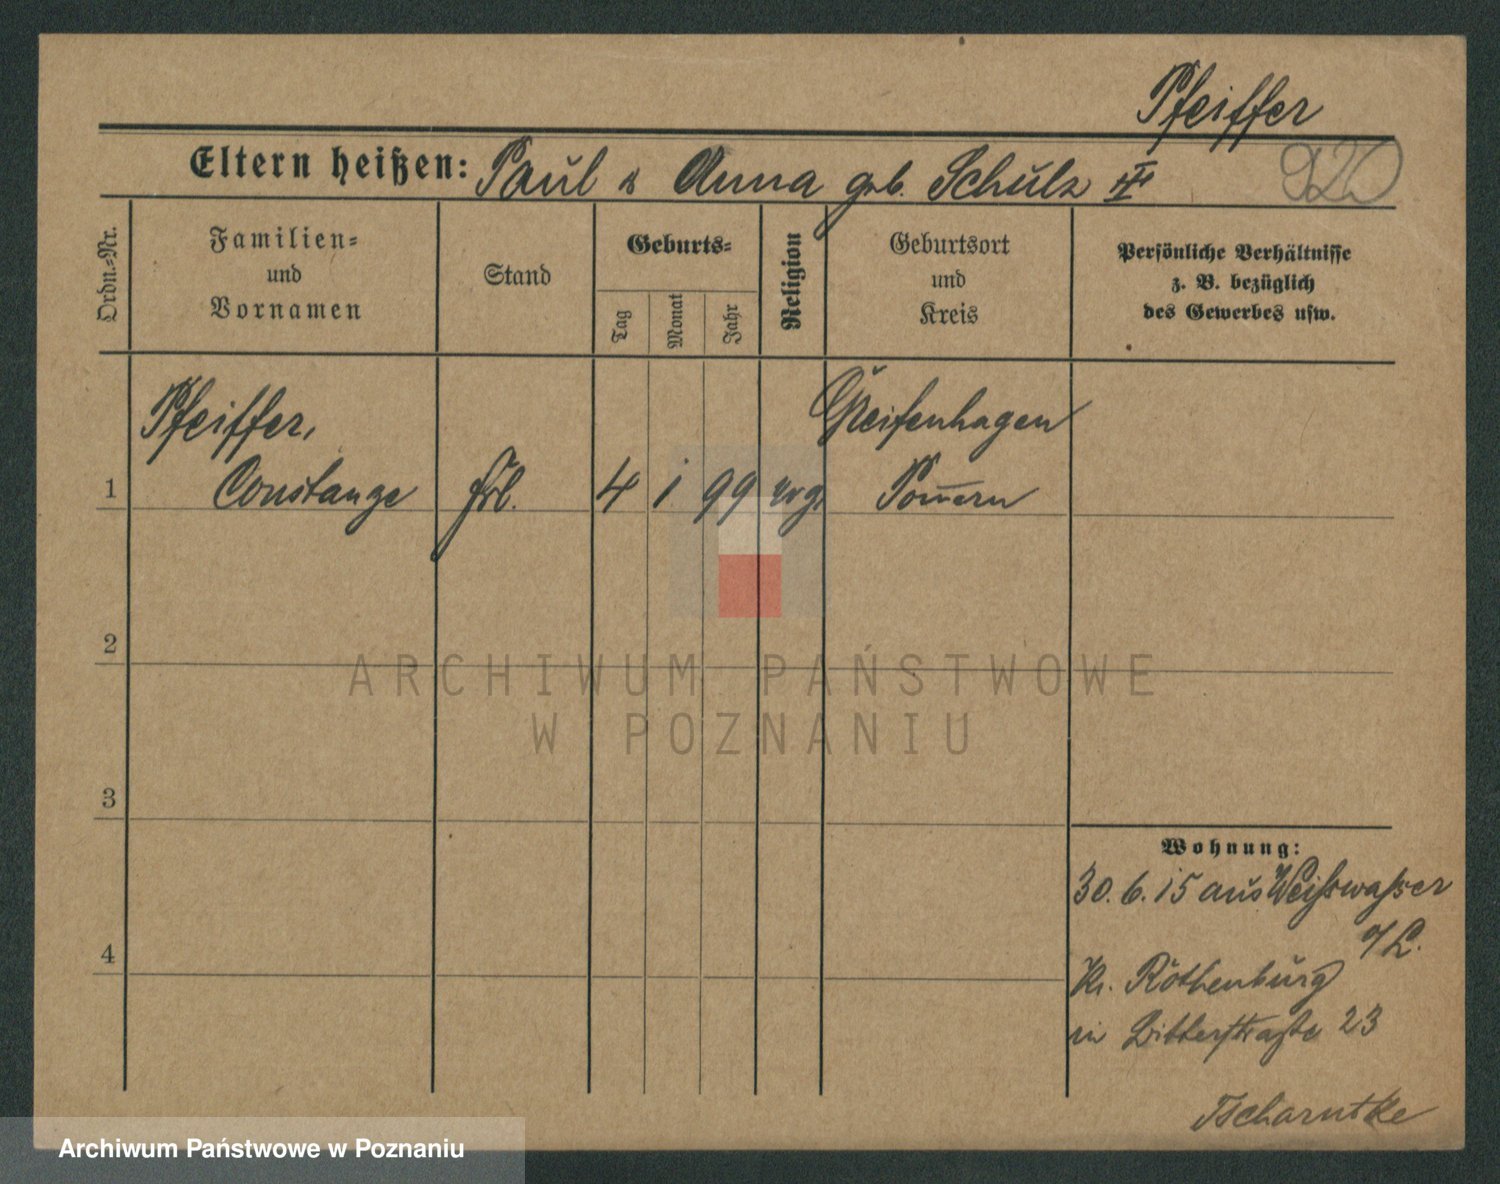 Pfeiffer
920
Eltern heißen: Paul & Anna geb. Schulz II
Ordn.-Nr.
Familien-
und
Vornamen
Stand
Geburts-
Tag
Monat
Jahr
Religion
Geburtsort
und
Kreis
Persönliche Verhältnisse
z. B. bezüglich
des Gewerbes usw.
1
Pfeiffer,
Constanze
Frl.
4
1
99
evg.
Greifenhagen
Pom̄ern
2
3
4
Wohnung:
30. 6. 15 aus Weißwasser
O/L.
Kr. Rothenburg
in Ritterstraße 23
Tscharntke
ARCHIWUM PAŃSTWOWE
W POZNANIU
Archiwum Państwowe w Poznaniu